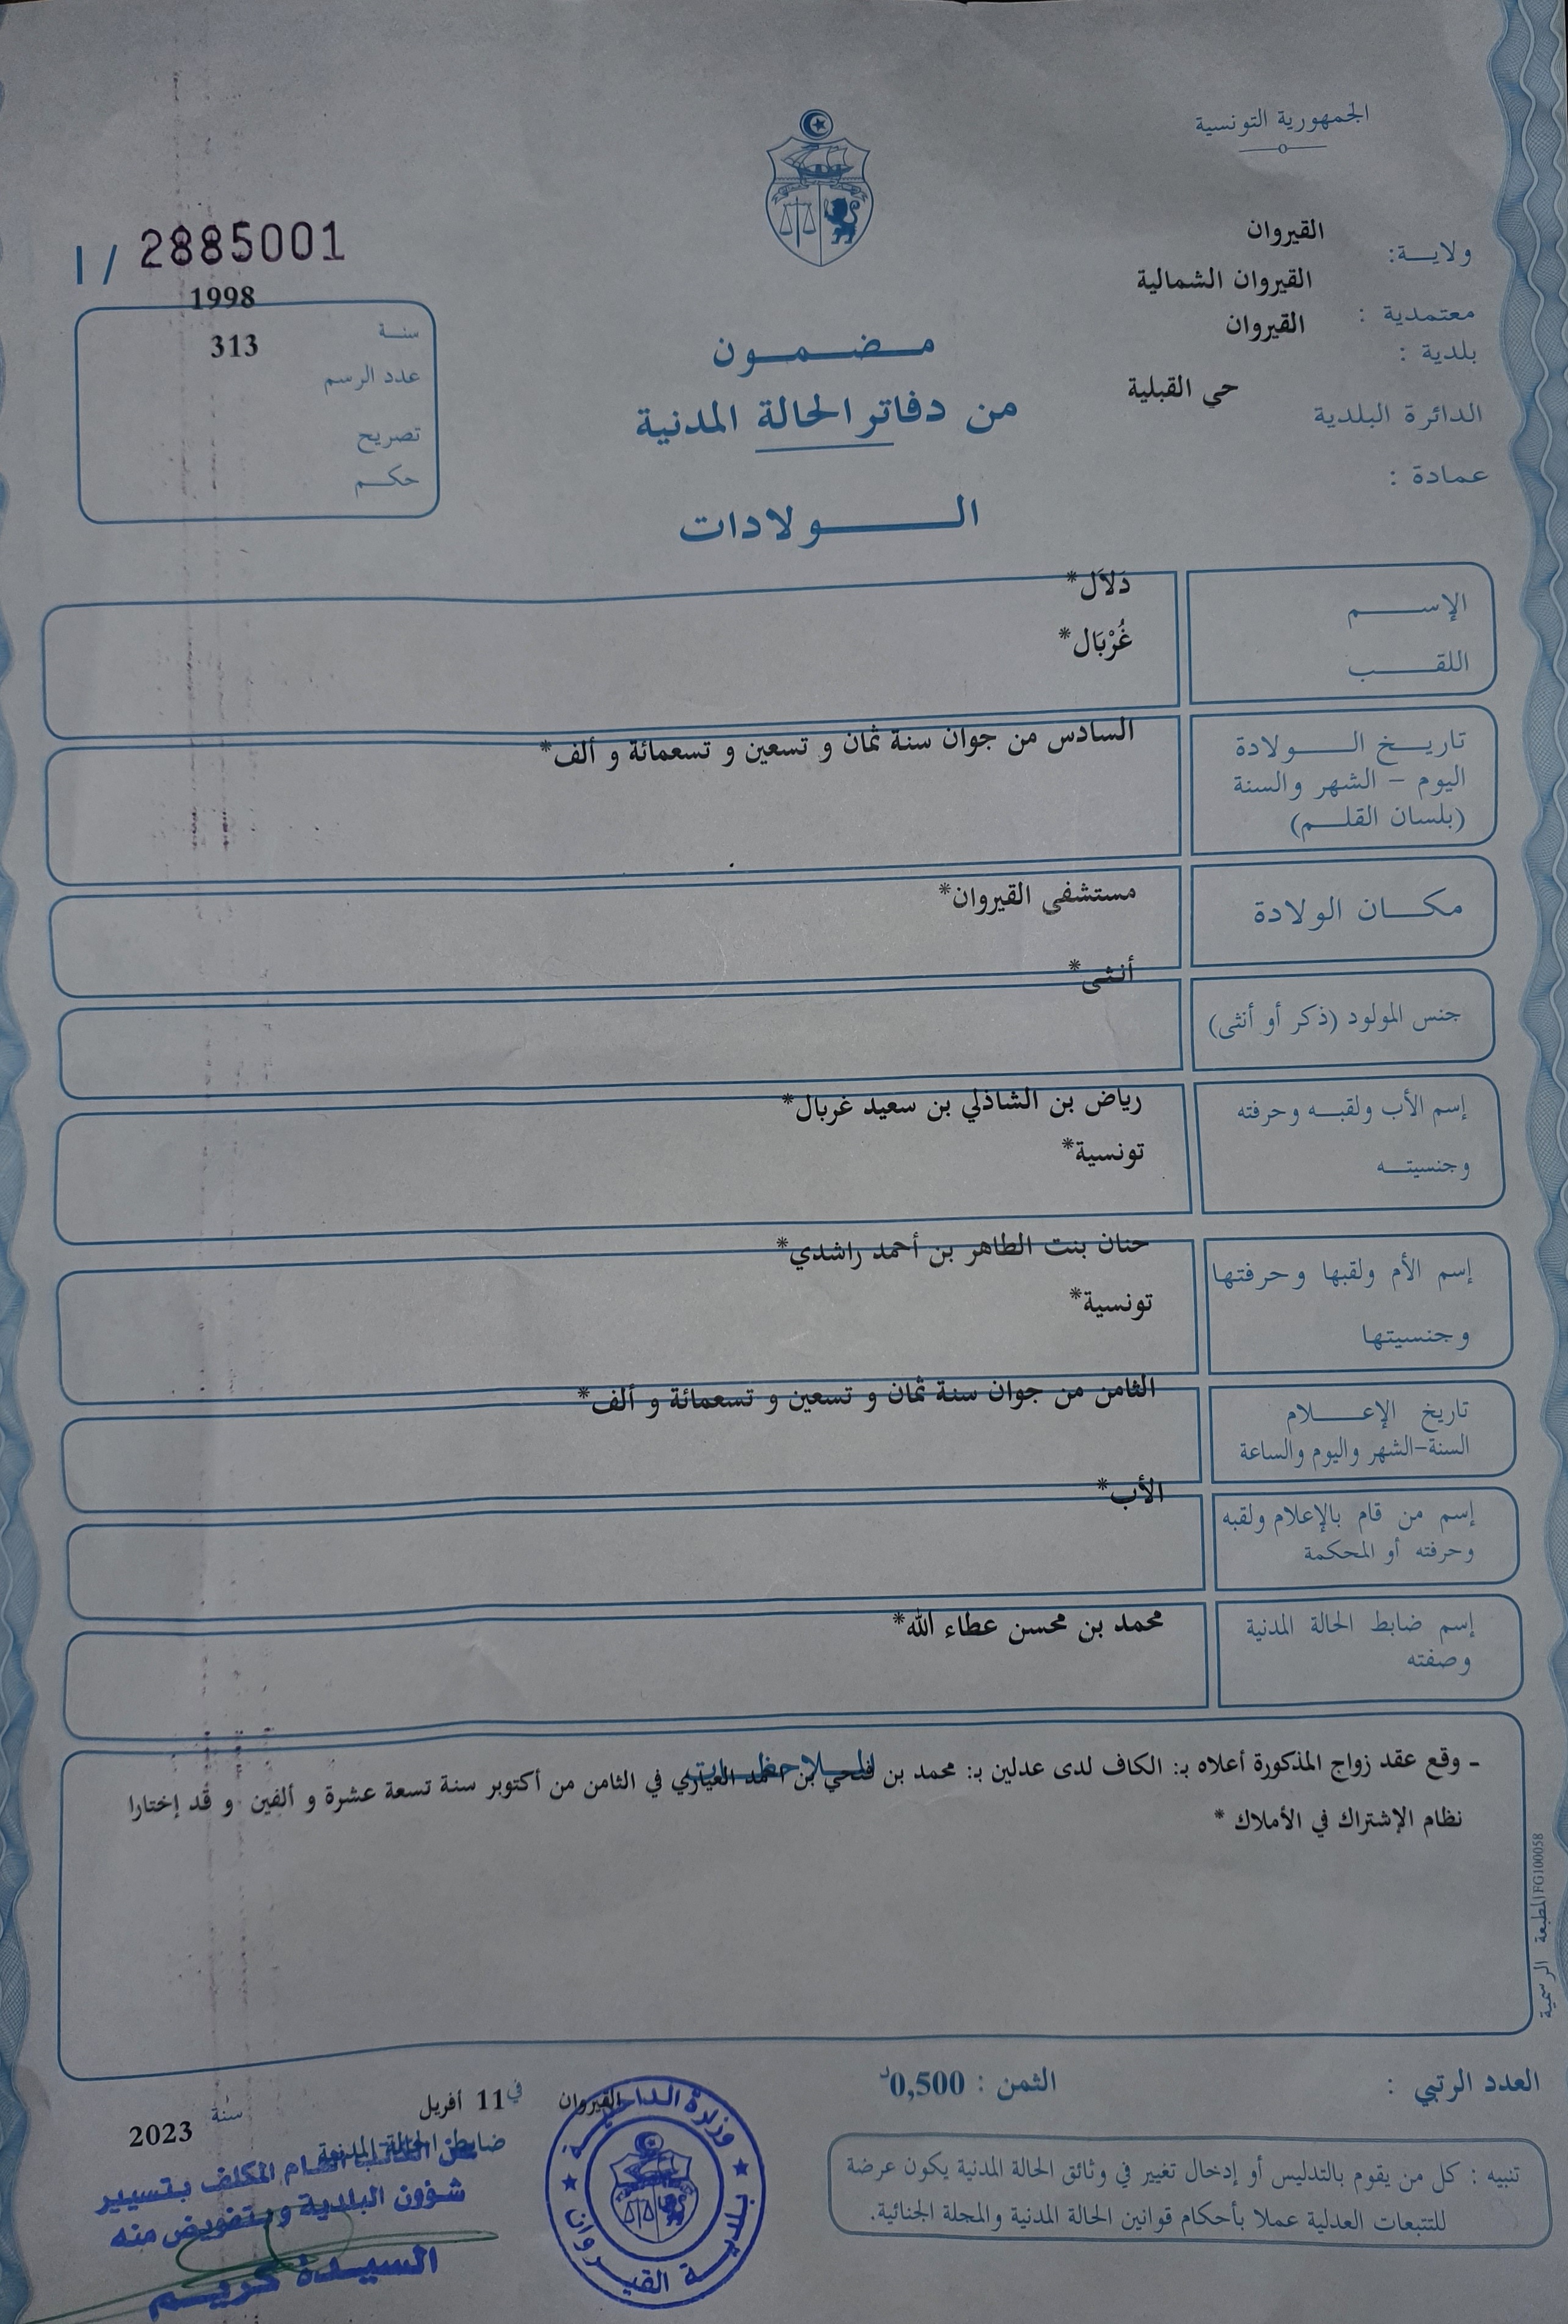 الجمهورية التونسية
ولايـــة: القيروان
معتمدية : القيروان الشمالية
بلدية : القيروان
الدائرة البلدية حي القبلية
عمادة :
I / 2885001
سنـة 1998
عدد الرسم 313
تصريح
حكــم
مـضـمـون
من دفاتر الحالة المدنية
الـولادات
الإســـم دَلاَل*
اللقـــب غُرْبَال*
تاريـخ الـــولادة السادس من جوان سنة ثمان و تسعين و تسعمائة و ألف*
اليوم - الشهر والسنة
(بلسان القلــم)
مكــان الولادة مستشفى القيروان*
جنس المولود (ذكر أو أنثى) أنثى*
إسم الأب ولقبــه وحرفته رياض بن الشاذلي بن سعيد غربال*
وجنسيتــه تونسية*
إسم الأم ولقبها وحرفتها حنان بنت الطاهر بن أحمد راشدي*
وجنسيتها تونسية*
تاريخ الإعـــلام الثامن من جوان سنة ثمان و تسعين و تسعمائة و ألف*
السنة-الشهر واليوم والساعة
إسم من قام بالإعلام ولقبه الأب*
وحرفته أو المحكمة
إسم ضابط الحالة المدنية محمد بن محسن عطاء الله*
وصفته
- وقع عقد زواج المذكورة أعلاه بـ: الكاف لدى عدلين بـ: محمد بن فتحي بن أحمد العياري في الثامن من أكتوبر سنة تسعة عشرة و ألفين و قد إختارا
نظام الإشتراك في الأملاك *
المطبعة الرسمية FG100058
العدد الرتبي :
الثمن : 0,500د
القيروان في 11 أفريل
سنة 2023
ضابط الحالة المدنية
المكلف بتسيير
شؤون البلدية وبتفويض منه
السيدة كريم
وزارة الداخلية
بلدية القيروان
تنبيه : كل من يقوم بالتدليس أو إدخال تغيير في وثائق الحالة المدنية يكون عرضة
للتتبعات العدلية عملا بأحكام قوانين الحالة المدنية والمجلة الجنائية.